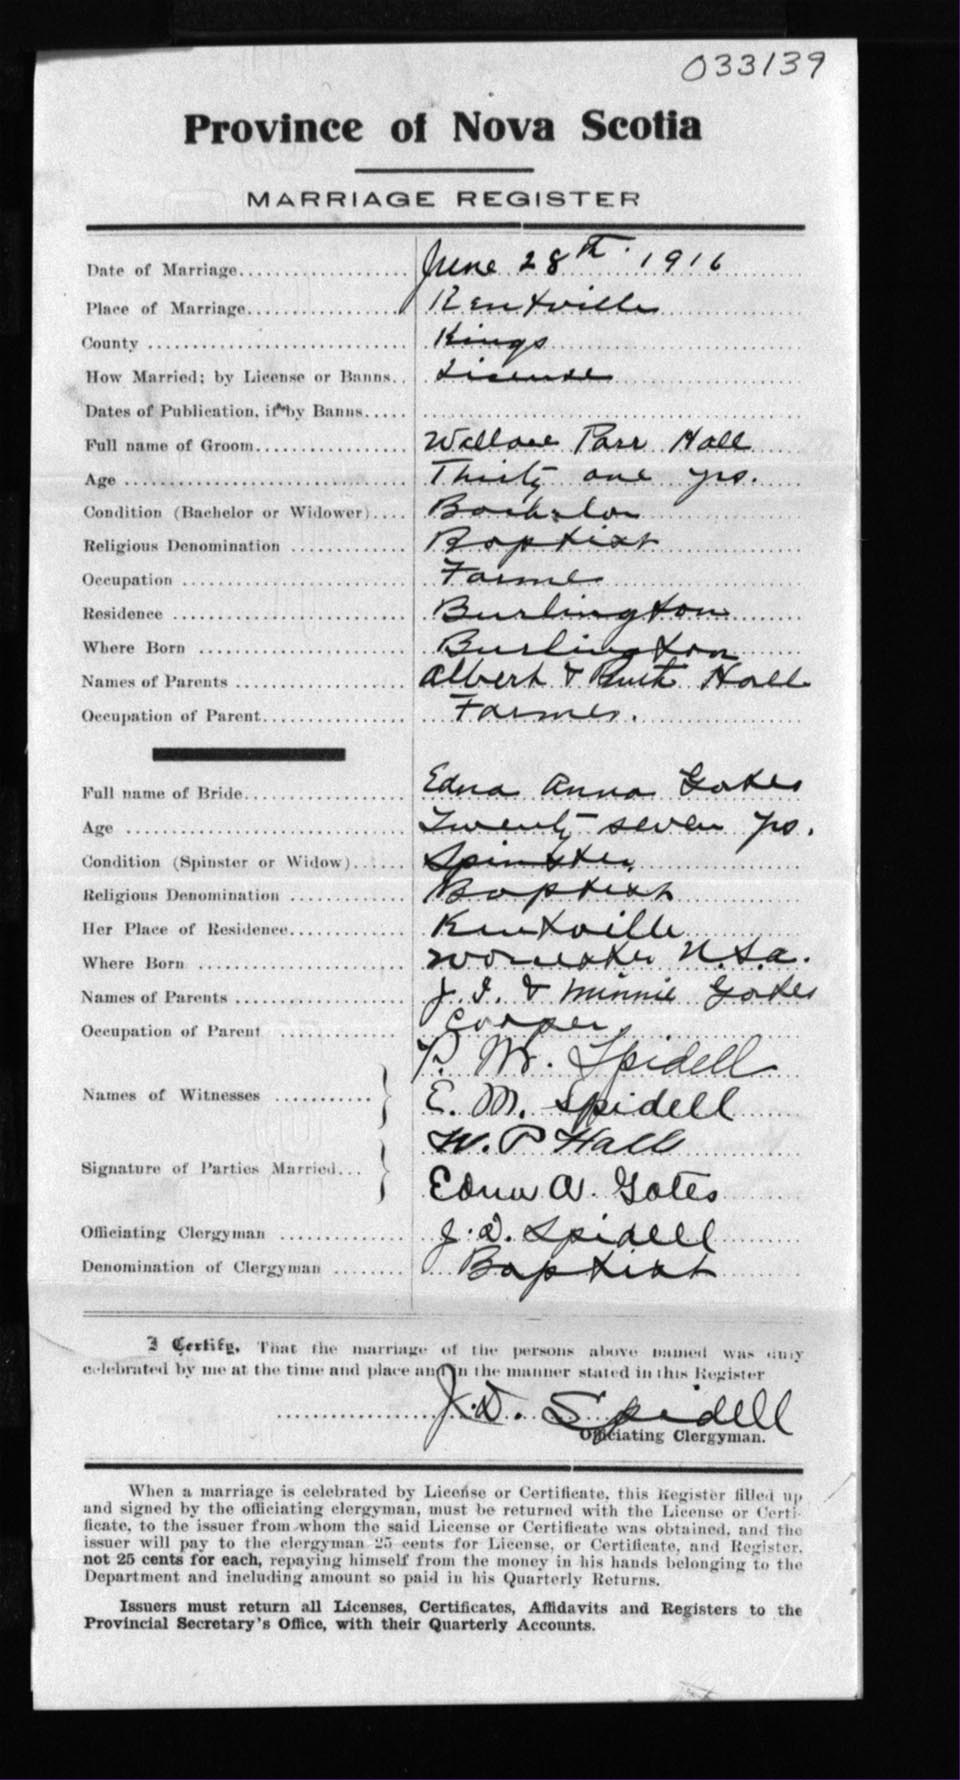 033139
Province of Nova Scotia
MARRIAGE REGISTER
Date of Marriage................... June 28th. 1916
Place of Marriage................. Kentville
County ............................ Kings
How Married; by License or Banns.. License
Dates of Publication, if by Banns.....
Full name of Groom................. Wallace Parr Hall
Age .............................. Thirty one yrs.
Condition (Bachelor or Widower).... Bachelor
Religious Denomination ............ Baptist
Occupation ........................ Farmer
Residence ......................... Burlington
Where Born ....................... Burlington
Names of Parents .................. Albert & Ruth Hall
Occupation of Parent............... Farmer.
Full name of Bride................. Edna Anna Gates
Age .............................. Twenty seven yrs.
Condition (Spinster or Widow)...... Spinster
Religious Denomination ............ Baptist
Her Place of Residence............. Kentville
Where Born ....................... Worcester U.S.a.
Names of Parents .................. J. I. & Minnie Gates
Occupation of Parent ............. Cooper
P. W. Spidell
Names of Witnesses ........... } E. M. Spidell
W. P Hall
Signature of Parties Married... } Edna A. Gates
Officiating Clergyman ............. J. D. Spidell
Denomination of Clergyman ........ Baptist
I Certify, That the marriage of the persons above named was duly
celebrated by me at the time and place and in the manner stated in this Register
J. D. Spidell
Officiating Clergyman.
When a marriage is celebrated by License or Certificate, this Register filled up
and signed by the officiating clergyman, must be returned with the License or Certi-
ficate, to the issuer from whom the said License or Certificate was obtained, and the
issuer will pay to the clergyman 25 cents for License, or Certificate, and Register,
not 25 cents for each, repaying himself from the money in his hands belonging to the
Department and including amount so paid in his Quarterly Returns.
Issuers must return all Licenses, Certificates, Affidavits and Registers to the
Provincial Secretary's Office, with their Quarterly Accounts.